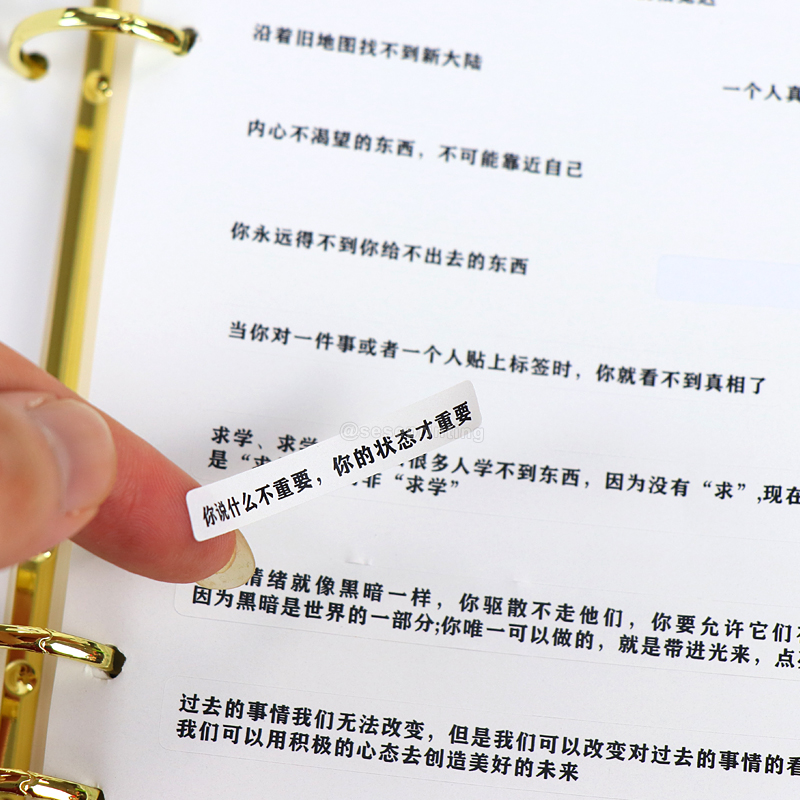 沿着旧地图找不到新大陆
一个人真
内心不渴望的东西，不可能靠近自己
你永远得不到你给不出去的东西
当你对一件事或者一个人贴上标签时，你就看不到真相了
求学、求学
很多人学不到东西，因为没有“求”,现在
是“求
非“求学”
你说什么不重要，你的状态才重要
情绪就像黑暗一样，你驱散不走他们，你要允许它们
因为黑暗是世界的一部分;你唯一可以做的，就是带进光来，点
过去的事情我们无法改变，但是我们可以改变对过去的事情的看
我们可以用积极的心态去创造美好的未来